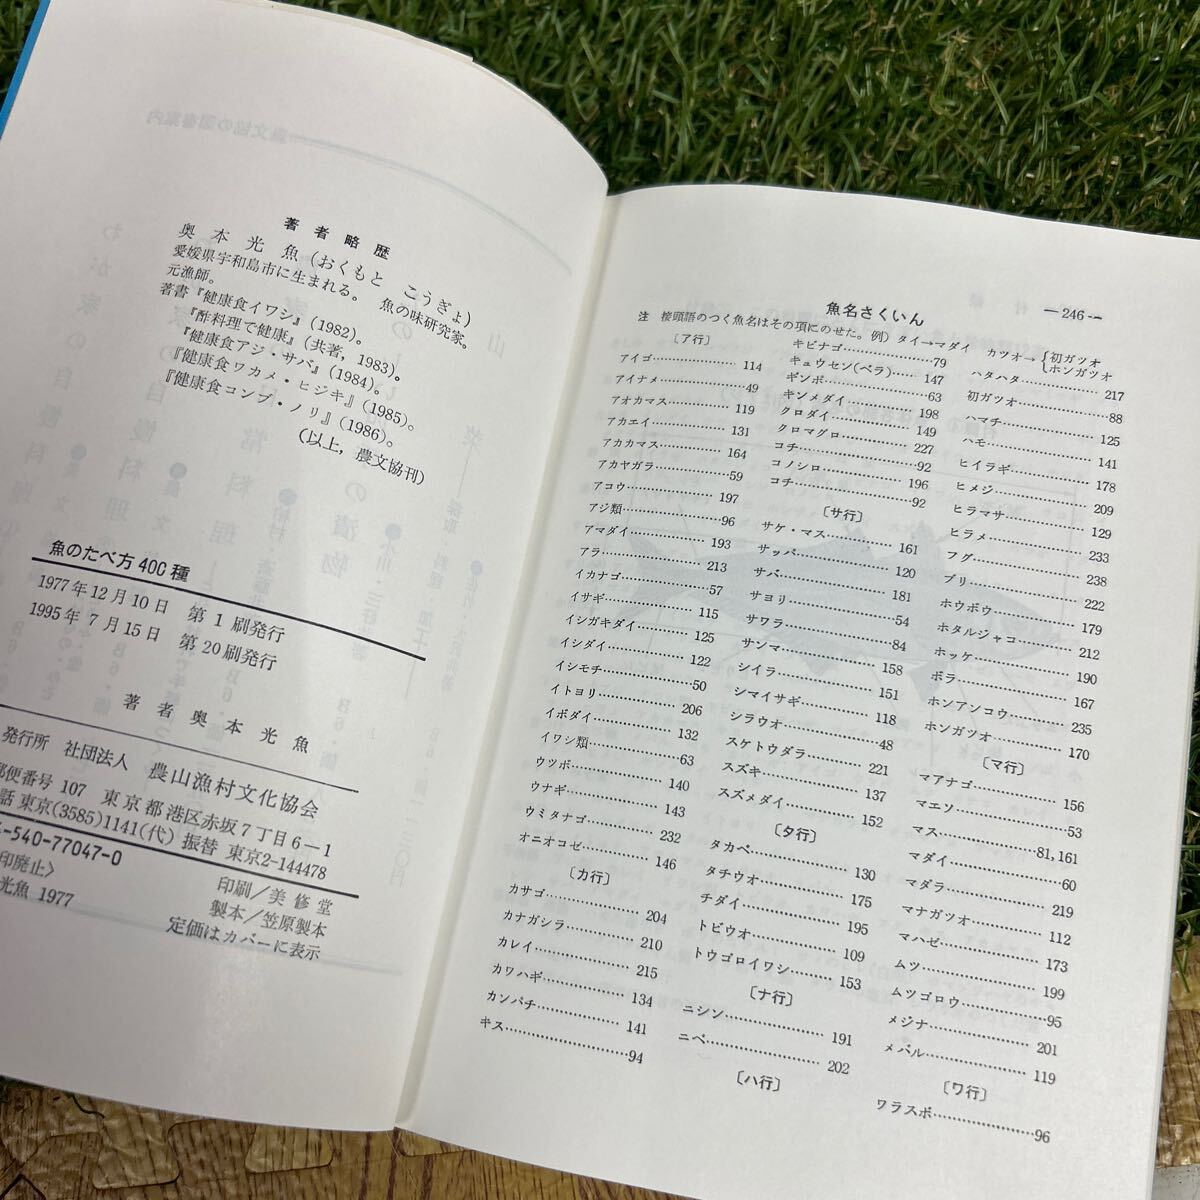 著者略歴
奥本光魚(おくもと こうぎょ)
愛媛県宇和島市に生まれる。 魚の味研究家。
元漁師。
著書『健康食イワシ』(1982)。
『酢料理で健康』(共著, 1983)。
『健康食アジ・サバ』(1984)。
『健康食ワカメ・ヒジキ』(1985)。
『健康食コンブ・ノリ』(1986)。
(以上, 農文協刊)
魚のたべ方400種
1977年12月10日 第1刷発行
1995年7月15日 第20刷発行
著者 奥本光魚
発行所 社団法人 農山漁村文化協会
郵便番号 107 東京都港区赤坂7丁目6―1
話 東京(3585)1141(代) 振替 東京2-144478
-540-77047-0
印廃止>
光魚 1977
印刷/美修堂
製本/笠原製本
定価はカバーに表示
魚名さくいん
―246―
注 接頭語のつく魚名はその項にのせた。例) タイ→マダイ カツオ→{初ガツオ ホンガツオ
〔ア行〕
アイゴ……114
アイナメ……49
アオカマス……119
アカエイ……131
アカカマス……164
アカヤガラ……59
アコウ……197
アジ類……96
アマダイ……193
アラ……213
イカナゴ……57
イサギ……115
イシガキダイ……125
イシダイ……122
イシモチ……50
イトヨリ……206
イボダイ……132
イワシ類……63
ウツボ……140
ウナギ……143
ウミタナゴ……232
オニオコゼ……146
〔カ行〕
カサゴ……204
カナガシラ……210
カレイ……215
カワハギ……134
カンパチ……141
キス……94
キビナゴ……79
キュウセン(ベラ)……147
ギンポ……63
キンメダイ……198
クロダイ……149
クロマグロ……227
コチ……92
コノシロ……196
コチ……92
〔サ行〕
サケ・マス……161
サッパ……120
サバ……181
サヨリ……54
サワラ……84
サンマ……158
シイラ……151
シマイサギ……118
シラウオ……48
スケトウダラ……221
スズキ……137
スズメダイ……152
〔タ行〕
タカベ……130
タチウオ……175
チダイ……195
トビウオ……109
トウゴロイワシ……153
〔ナ行〕
ニシン……191
ニベ……202
〔ハ行〕
ハタハタ……217
初ガツオ……88
ハマチ……125
ハモ……141
ヒイラギ……178
ヒメジ……209
ヒラマサ……129
ヒラメ……233
フグ……238
ブリ……222
ホウボウ……179
ホタルジャコ……212
ホッケ……190
ボラ……167
ホンアンコウ……235
ホンガツオ……170
〔マ行〕
マアナゴ……156
マエソ……53
マス……81,161
マダイ……60
マダラ……219
マナガツオ……112
マハゼ……173
ムツ……199
ムツゴロウ……95
メジナ……201
メバル……119
〔ワ行〕
ワラスボ……96